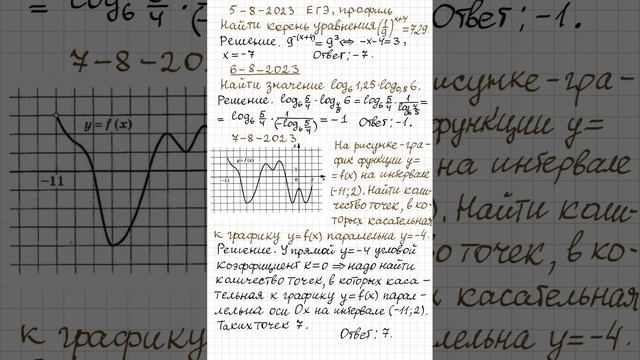 5-8-2023 ЕГЭ, профиль
Найти корень уравнения (1/9)^x+4 = 729.
Решение. 9^-(x+4) = 9^3 ⇔ -x-4=3,
x=-7 Ответ: -7.
6-8-2023
Найти значение log₆1,25·log₀,₈6.
Решение. log₆ 5/4 · log_4/5 6 = log₆ 5/4 · 1/log₆ 4/5 =
= log₆ 5/4 · 1/(-log₆ 5/4) = -1 Ответ: -1.
7-8-2023
y=f(x)
-11
0
На рисунке-гра-
фик функции y=
=f(x) на интервале
(-11;2). Найти коли-
чество точек, в ко-
торых касательная
к графику y=f(x) параллельна y=-4.
Решение. У прямой y=-4 угловой
коэффициент k=0 ⇒ надо найти
количество точек, в которых каса-
тельная к графику y=f(x) парал-
лельна оси Ox на интервале (-11;2).
Таких точек 7.
Ответ: 7.
7-8-202
y=f(x)
-11
к графику
Ответ: -1.
рисунке-гра-
функции y=
на интервале
). Найти коли-
точек, в ко-
касательная
ллельна y=-4.